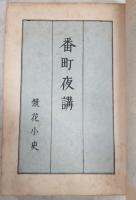 番町夜講
鏡花小史